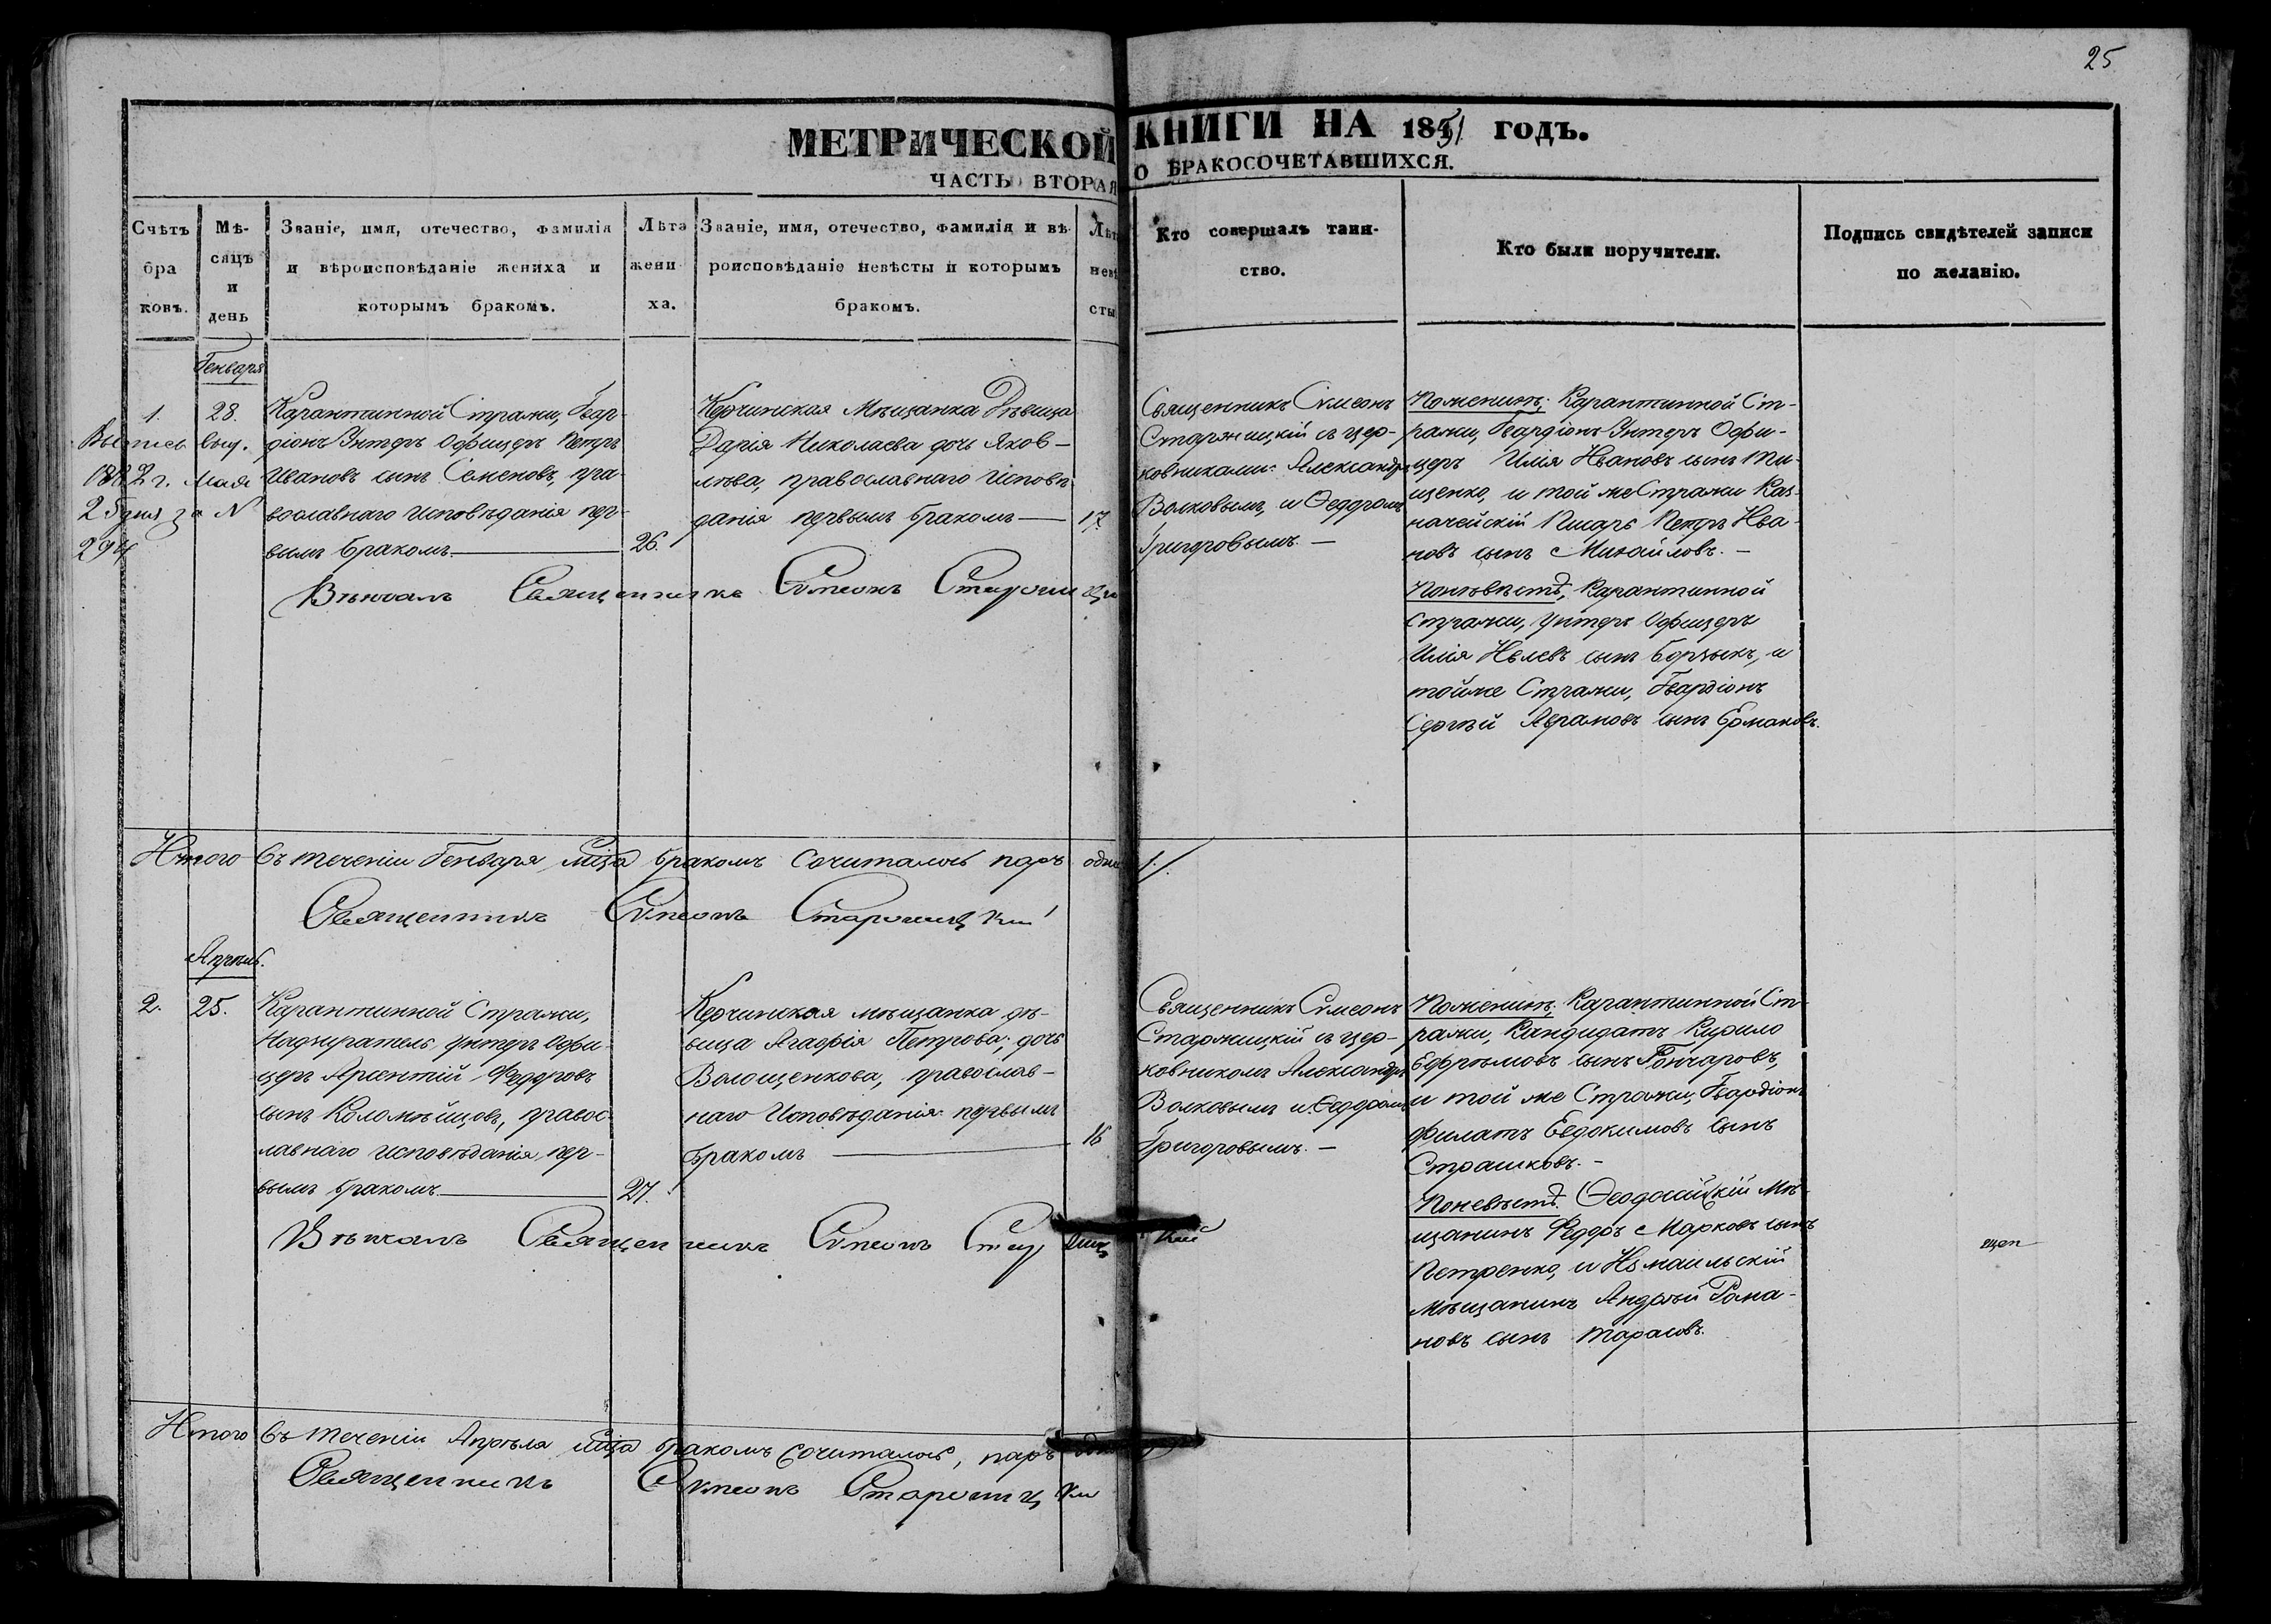 25
МЕТРИЧЕСКОЙ КНИГИ НА 1851 ГОДЪ.
ЧАСТЬ ВТОРАЯ О БРАКОСОЧЕТАВШИХСЯ.
Счѣтъ
бра
ковъ.
Мѣ-
сяцъ
и
день
Званіе, имя, отечество, фамилія
и вѣроисповѣданіе жениха и
которымъ бракомъ.
Лѣта
жени
ха.
Званіе, имя, отечество, фамилія и вѣ-
роисповѣданіе невѣсты и которымъ
бракомъ.
Лѣт
невѣ
сты
Кто совершалъ таин-
ство.
Кто были поручители.
Подпись свидѣтелей записи
по желанію.
Генваря
1.
28.
Выпись выд.
1882 г. Мая
25 дня за N
294
Карантинной Стражи, Гвар-
діонъ Унтеръ Офицеръ Петръ
Ивановъ сынъ Семеновъ, пра-
вославнаго исповѣданія пер-
вымъ бракомъ.
26.
Керчинская Мѣщанка Дѣвица
Дарія Николаева дочь Яков-
лѣва, православнаго Исповѣ-
данія первымъ бракомъ
17.
Вѣнчалъ Священникъ Сѵмеонъ
Священникъ Сѵмеонъ
Старжицкій съ цер-
ковниками: Александр
Волковымъ, и Ѳедоромъ
Григоровымъ. —
Поженихѣ; Карантинной Ст-
ражи, Гвардіонъ Унтеръ Офи-
церъ Илія Ивановъ сынъ
и той же Стражи Каз-
начейскій Писарь Петръ Ива-
новъ сынъ Михайловъ. —
Поневѣстѣ; Карантинной
Стражи, Унтеръ Офицеръ
Илія сынъ и
тойже Стражи, Гвардіонъ
Сергѣй Аврамовъ сынъ Ермаковъ.
Итого въ теченіи Генваря мца бракомъ сочиталось паръ одна 1.
Священникъ Сѵмеонъ
Апрѣль.
2.
25.
Карантинной Стражи,
Надзиратель Унтеръ Офи-
церъ Арсентій Федоровъ
сынъ Коломѣйцовъ, правос-
лавнаго исповѣданія, пер-
вымъ бракомъ.
27.
Керчинская мѣщанка дѣ-
вица Агафія Петрова; дочь
Волощенкова, православ-
наго Исповѣданія первымъ
бракомъ
16
Вѣнчалъ Священникъ Сѵмеонъ
Священникъ Сѵмеонъ
Старжицкій съ цер-
ковникомъ Александр
Волковымъ и Ѳедоромъ
Григоровымъ. —
Поженихѣ; Карантинной Ст-
ражи, Кандидатъ Кирило
Ефрѣмовъ сынъ Гончаровъ,
и той же Стражи, Гвардіонъ
Филатъ Евдокимовъ сынъ
Страшковъ. —
Поневѣстѣ. Ѳеодосійскій Мѣ-
щанинъ Федоръ Марковъ сынъ
Петренко, и Измаильскій
Мѣщанинъ Андрѣй Рома-
новъ сынъ Тарасовъ.
Итого въ теченіи Апрѣля мца бракомъ сочиталось, паръ одна
Священникъ Сѵмеонъ